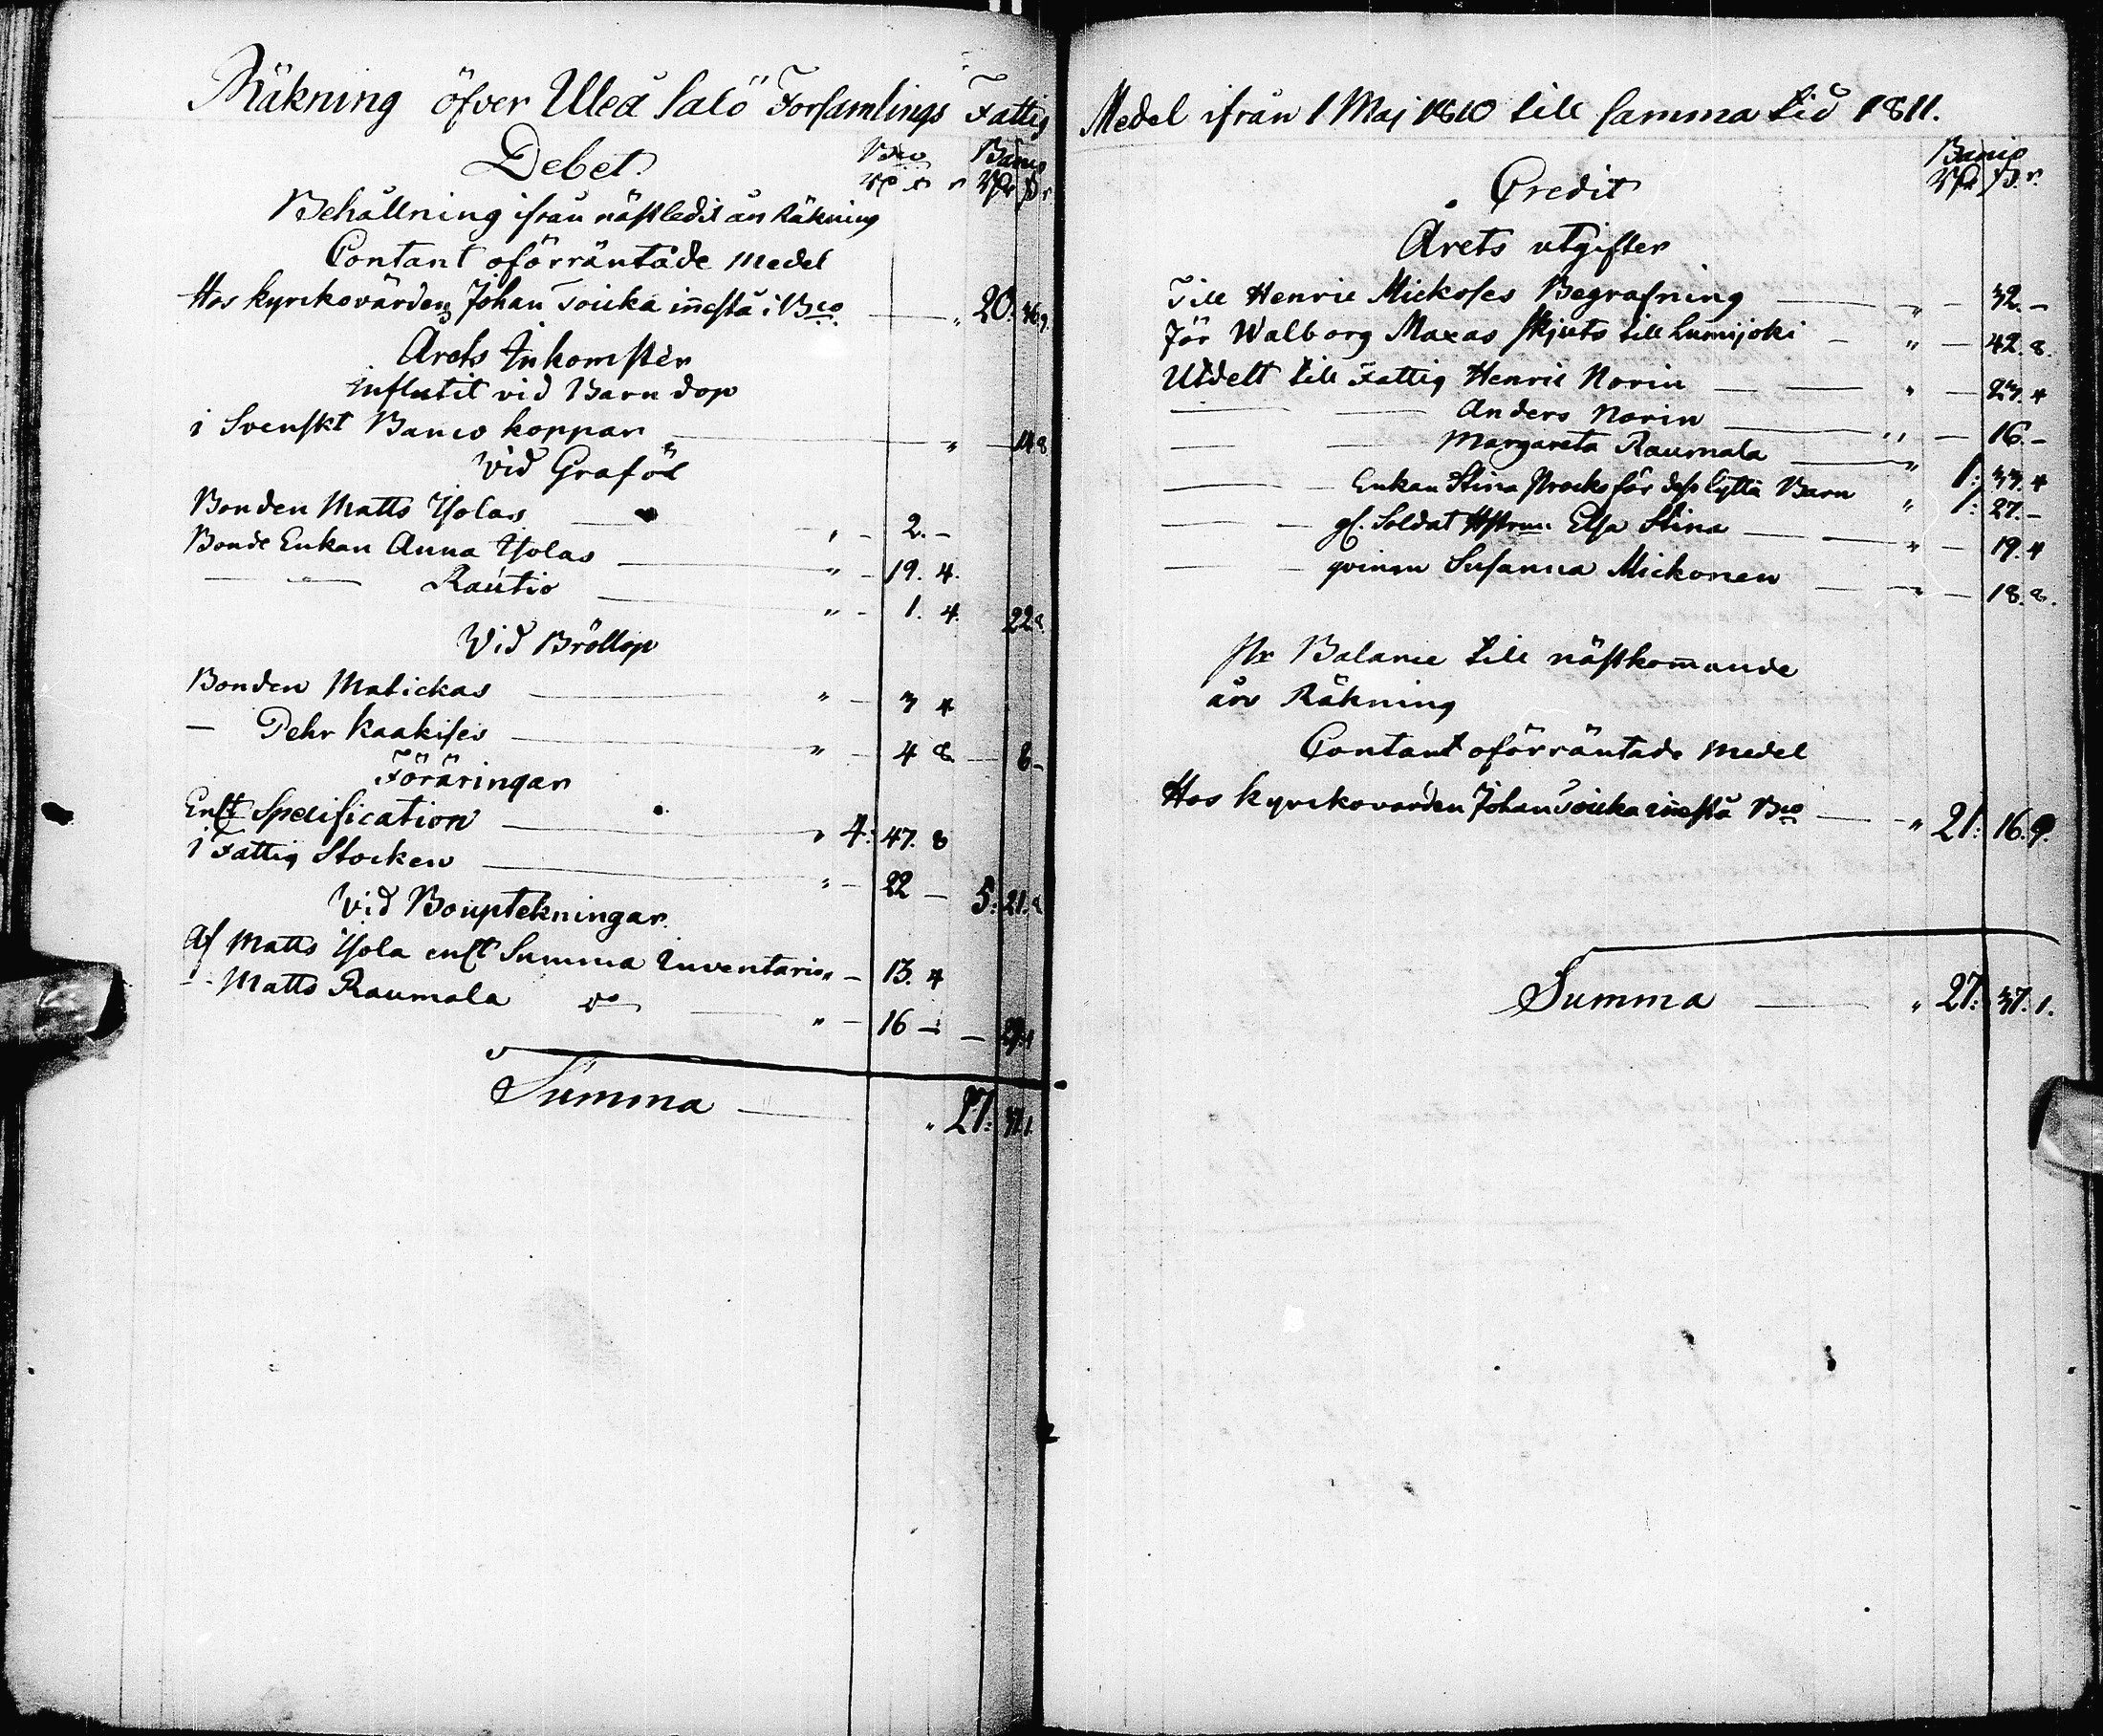 Räkning öfver Uleå Salö Forsamlings Fattig
Debet
Bco Banco
Behållning ifrån nästledit års Räkning
Contant oförräntade medel
Hos kyrckovärden Johan Toicka innestå i Bco " 20: 36. 9.
Arets Inkomster
influtit vid Barn dop
i Svenskt Banco koppar " — 14 8
Vid Graföl
Bonden Matts Ysolas " - 2. -
Bonde Enkan Anna Ysolas " - 19. 4.
— — Rautio " - 1. 4. 22 8.
Vid Bröllop
Bonden Matickas " - 3 4
— Pehr Kaakises " - 4 8 — 8 -
Föräringar
Enlt Specification " 4: 47. 8
i Fattig Stocken " - 22 — 5: 21. 8
Vid Bouptekningar
Af Matts Ysola enlt Summa Inventarii " - 13. 4
— Matts Raumala do " - 16 — — 29. 4
Summa " 27: 37. 1.
Medel ifrån 1 Maj 1810 till samma tid 1811.
Credit
Banco
Arets utgifter
Till Henric Mickoses Begrafning " - 32. -
För Walborg Maxas skjuts till Lumijoki " - 42. 8.
Utdelt till Fattig Henric Norin " - 23. 4
— — Anders Norin " - 16. -
— — Margareta Raumala " 1: 33. 4
— — Enkan Stina Strocks för dess lytta Barn " 1: 27. -
— — gl. Soldat Elsa Stina " - 19. 4
— — qvinan Susanna Mickonen " - 18. 8.
pr Balance till nästkommande
års Räkning
Contant oförräntade medel
Hos kyrckovarden Johan Toicka innestå Bco " 21: 16. 9.
Summa " 27: 37. 1.